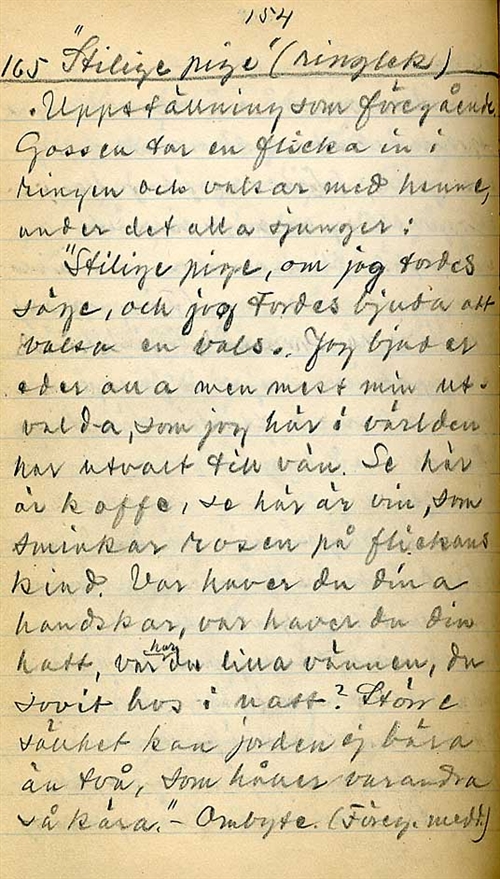 154
165 "Stilige pige" (ringlek)
. Uppställning som föregående.
Gossen tar en flicka in i
ringen och valsar med henne,
under det alla sjunger:
"Stilige pige, om jag tordes
säge, och jag tordes bjuda att
valsa en vals. Jag bjuder
eder alla men mest min ut-
valda, som jag här i världen
har utvalt till vän. Se här
är kaffe, se här är vin, som
sminkar rosen på flickans
kind. Var haver du dina
handskar, var haver du din
hatt, var har du lilla vännen, du
sovit hos i natt? Större
sällhet kan jorden ej bära
än två, som håller varandra
så kära." - Ombyte. (Föreg. medd.)